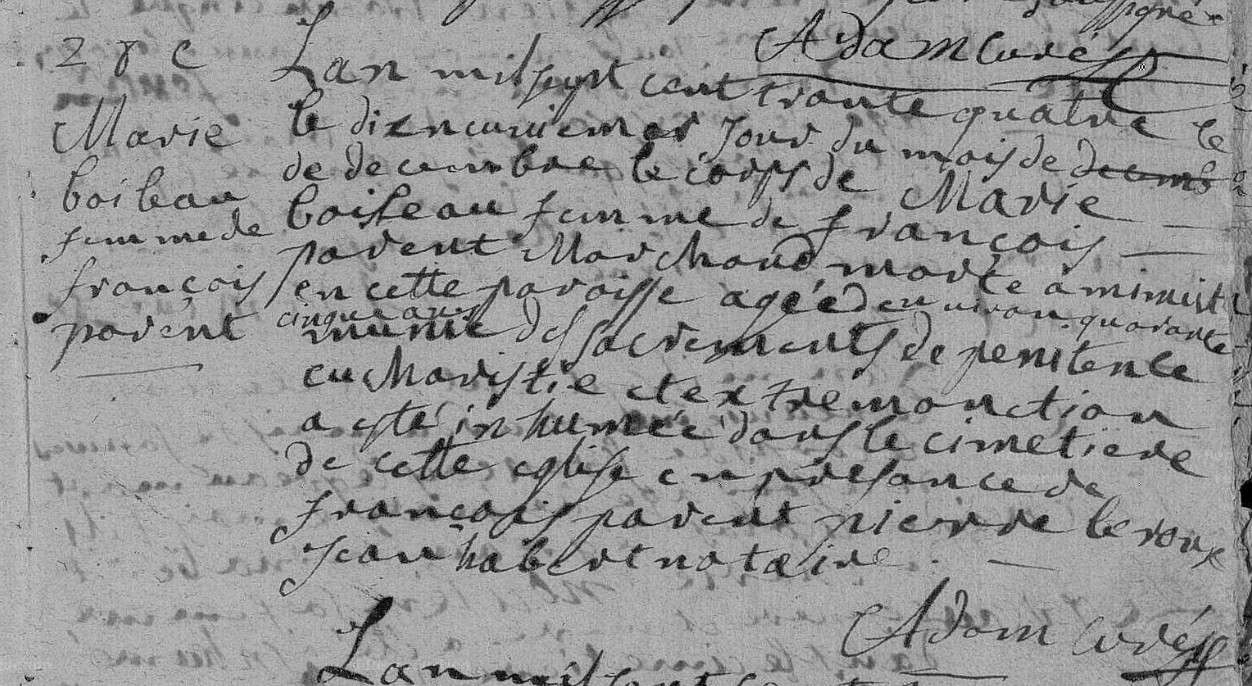 Adam Curé
28e
Marie
boileau
femme de
françois
parent
Lan mil sept cent trante quatre le
le dixneuuiemes Jour du mois de decemb
de decembre le corps de Marie
boileau femme de françois
parent Marchand morte a minuit
en cette paroisse agéé denuiron quarante
cinque ans
munie des sacrements de penitence
eucharistie et extremonction
a esté inhumée dans le cimetiere
de cette eglise en presance de
françois parent pierre le roux
jean habert notaire
Adam curé
Lan mil sept cent